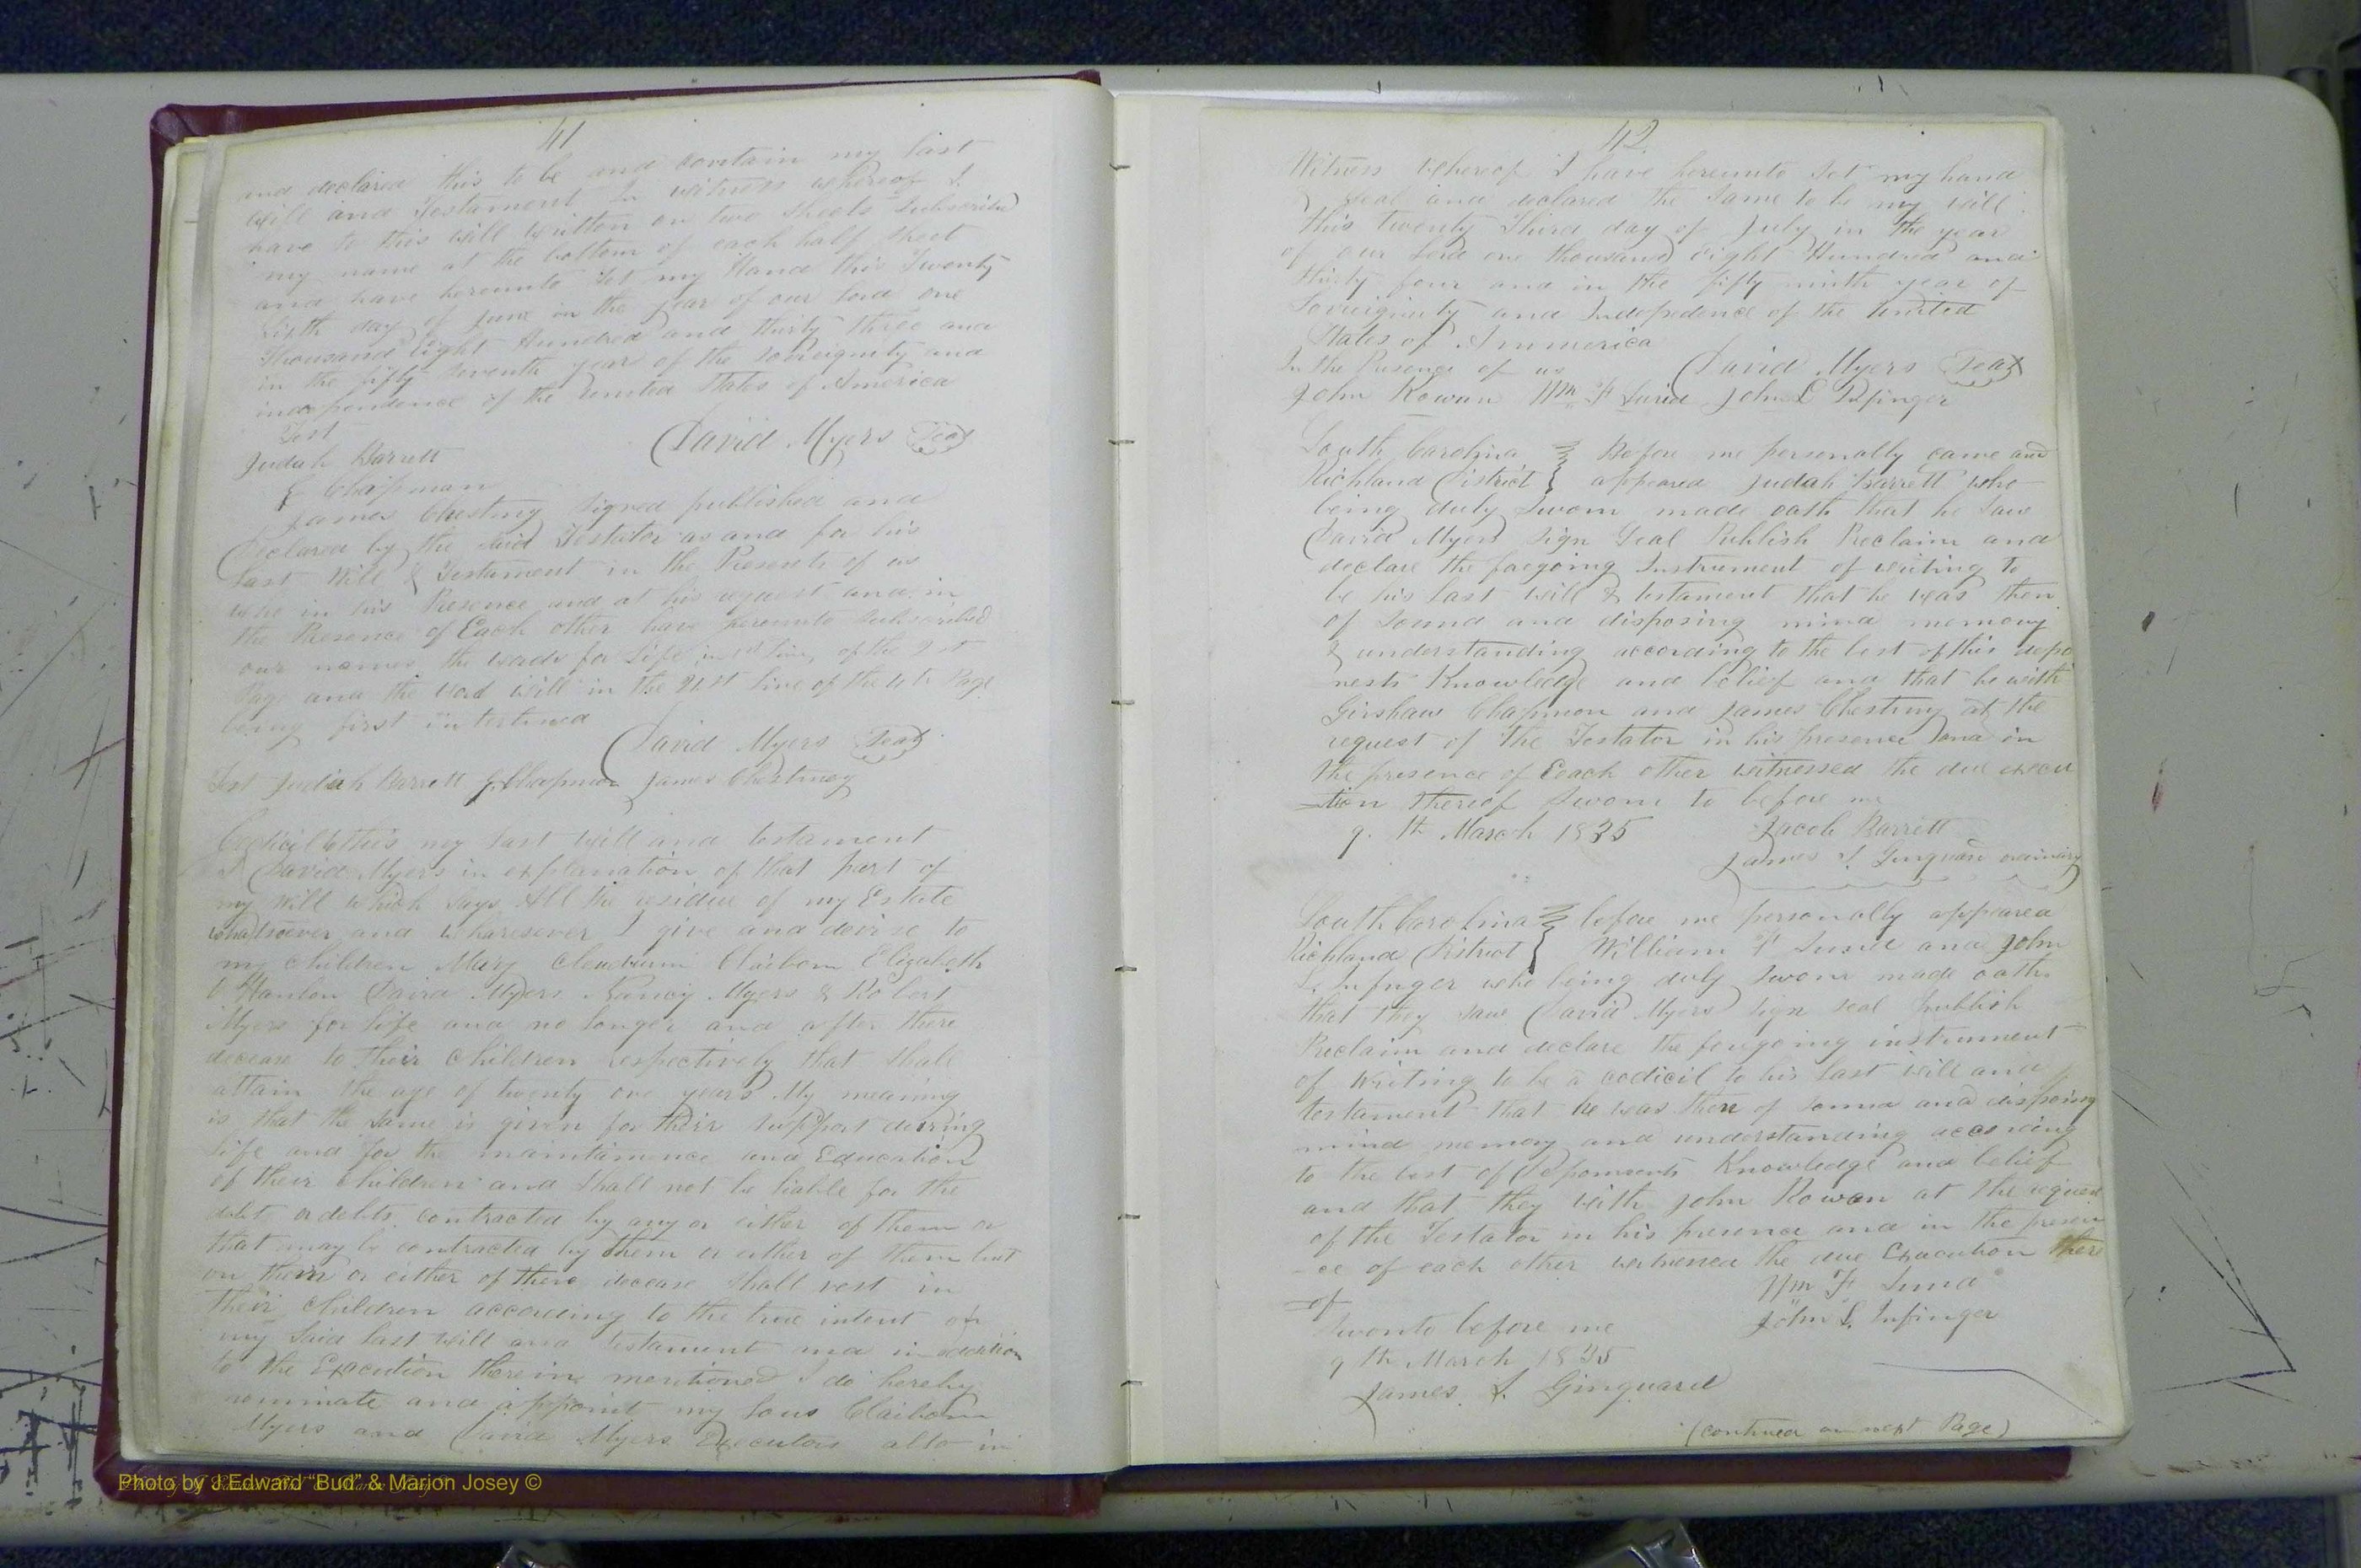 41
and declared this to be and contain my last
Will and Testament In witness whereof I
have to this Will written on two Sheets Subscribed
my name at the bottom of each half Sheet
and have hereunto Set my Hand this Twenty
Sixth day of June in the year of our Lord one
Thousand Eight Hundred and thirty three and
in the fifty Seventh year of the Sovereignity and
independence of the United States of America
Test
David Myers Seal
Judah Barrett
G Chapman
James Chestney Signed published and
Declared by the said Testator as and for his
Last Will & Testament in the Presents of us
who in his Presence and at his request and in
the Presence of Each other have hereunto Subscribed
our names the words for Life in 1st line of the 2nd
Page and the word will in the 21st line of the 4th Page
being first intertined
David Myers Seal
Test Judah Barrett G. Chapman James Chestney
Codicil to this my last will and testament
I David Myers in explanation of that part of
my Will which Says All the residue of my Estate
whatsoever and wharesoever I give and devise to
my children Mary Claiborn Elizabeth
O Hanlon David Myers Nancy Myers & Robert
Myers for life and no longer and after there
decease to their children respectively that Shall
attain the age of twenty one years My meaning
is that the Same is given for their Support during
life and for the maintainence and Education
of their children and Shall not be liable for the
debt or debts contracted by any or either of them or
that may be contracted by them or either of them but
on their or either of there decease Shall vest in
their children according to the true intent of
my Said last Will and testament and in addition
to the Execution therein mentioned I do hereby
nominate and appoint my Sons Claiborn
Myers and David Myers Executors also in
42
Witness Whereof I have hereunto Set my hand
& Seal and declared the Same to be my will
this twenty Third day of July in the year
of our Lord one thousand eight Hundred and
thirty four and in the fifty ninth year of
Soveignity and Indepedence of the United
States of Ammerica
In the Presence of us David Myers Seal
John Rowan Wm F John L
South Carolina Before me personally came and
Richland District appeared Judah Barrett who
being duly Sworn made oath that he Saw
David Myers Sign Seal Publish Proclaim and
declare the forgoing Instrument of writing to
be his last will & testament that he was then
of Sound and disposing mind memory
& understanding according to the best of this depo
nents Knowledge and belief and that he with
Girshaw Chapmon and James Chestney at the
request of the Testator in his presence and in
the presence of Eeach other witnessed the due execu
-tion thereof Sworn to before me
9. th March 1835 Jacob Barrett
James S. Guignard ordinary
South Carolina before me personally appeared
Richland District William F and John
L. Infinger who being duly Sworn made oath
that they saw David Myers Sign seal publish
Proclaim and declare the forgoing instrument
of Writing to be a codicil to his last will and
testament that he was then of Sound and disposing
mind memory and understanding according
to the best of Deponents Knowledge and belief
and that they with John Rowan at the request
of the Testator in his presence and in the presen
-ce of each other witnessed the due Execution there
=of Wm F
Sworn to before me John L. Infinger
9 th March 1835
James S. Guignard
(continued on next Page)
Photo by J Edward "Bud" & Marion Josey ©